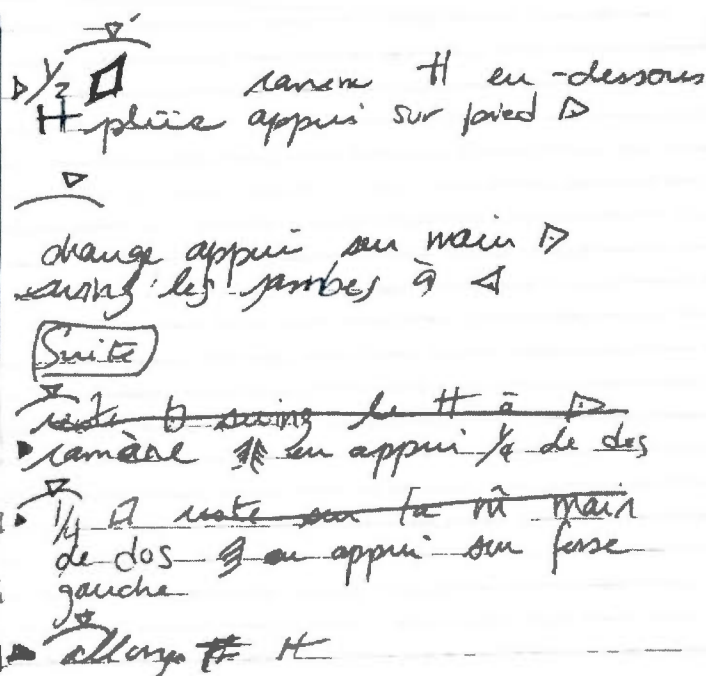 1/2 ramène H en-dessous
H pliée appui sur pied ▷
change appui sur main ▷
swing les jambes à ◁
Suite
reste swing le H à ▷
ramène en appui 1/4 de dos
1/4 reste sur la m̂ main
de dos en appui sur fesse
gauche
allonge H